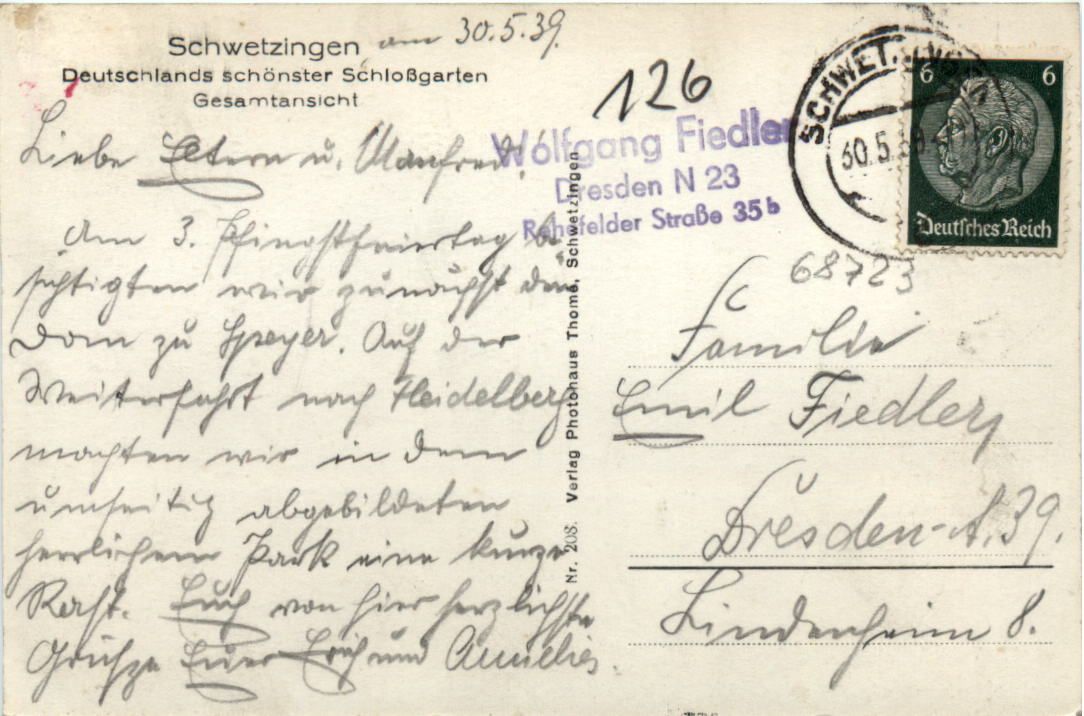 Schwetzingen am 30.5.39.
Deutschlands schönster Schloßgarten
Gesamtansicht
Liebe Eltern u. Manfred!
Am 3. Pfingstfeiertag be-
sichtigten wir zunächst den
Dom zu Speyer. Auf der
Weiterfahrt nach Heidelberg
machten wir in dem
umseitig abgebildeten
herrlichem Park eine kurze
Rast. Euch von hier herzlichste
Grüße Euer Erich und Annelies.
Nr. 208. Verlag Photohaus Thome, Schwetzingen
126
Wolfgang Fiedler
Dresden N 23
Rehefelder Straße 35b
SCHWETZINGEN
30.5.39
6 6
Deutsches Reich
68723
Familie
Emil Fiedler,
Dresden-A.39.
Lindenheim 8.